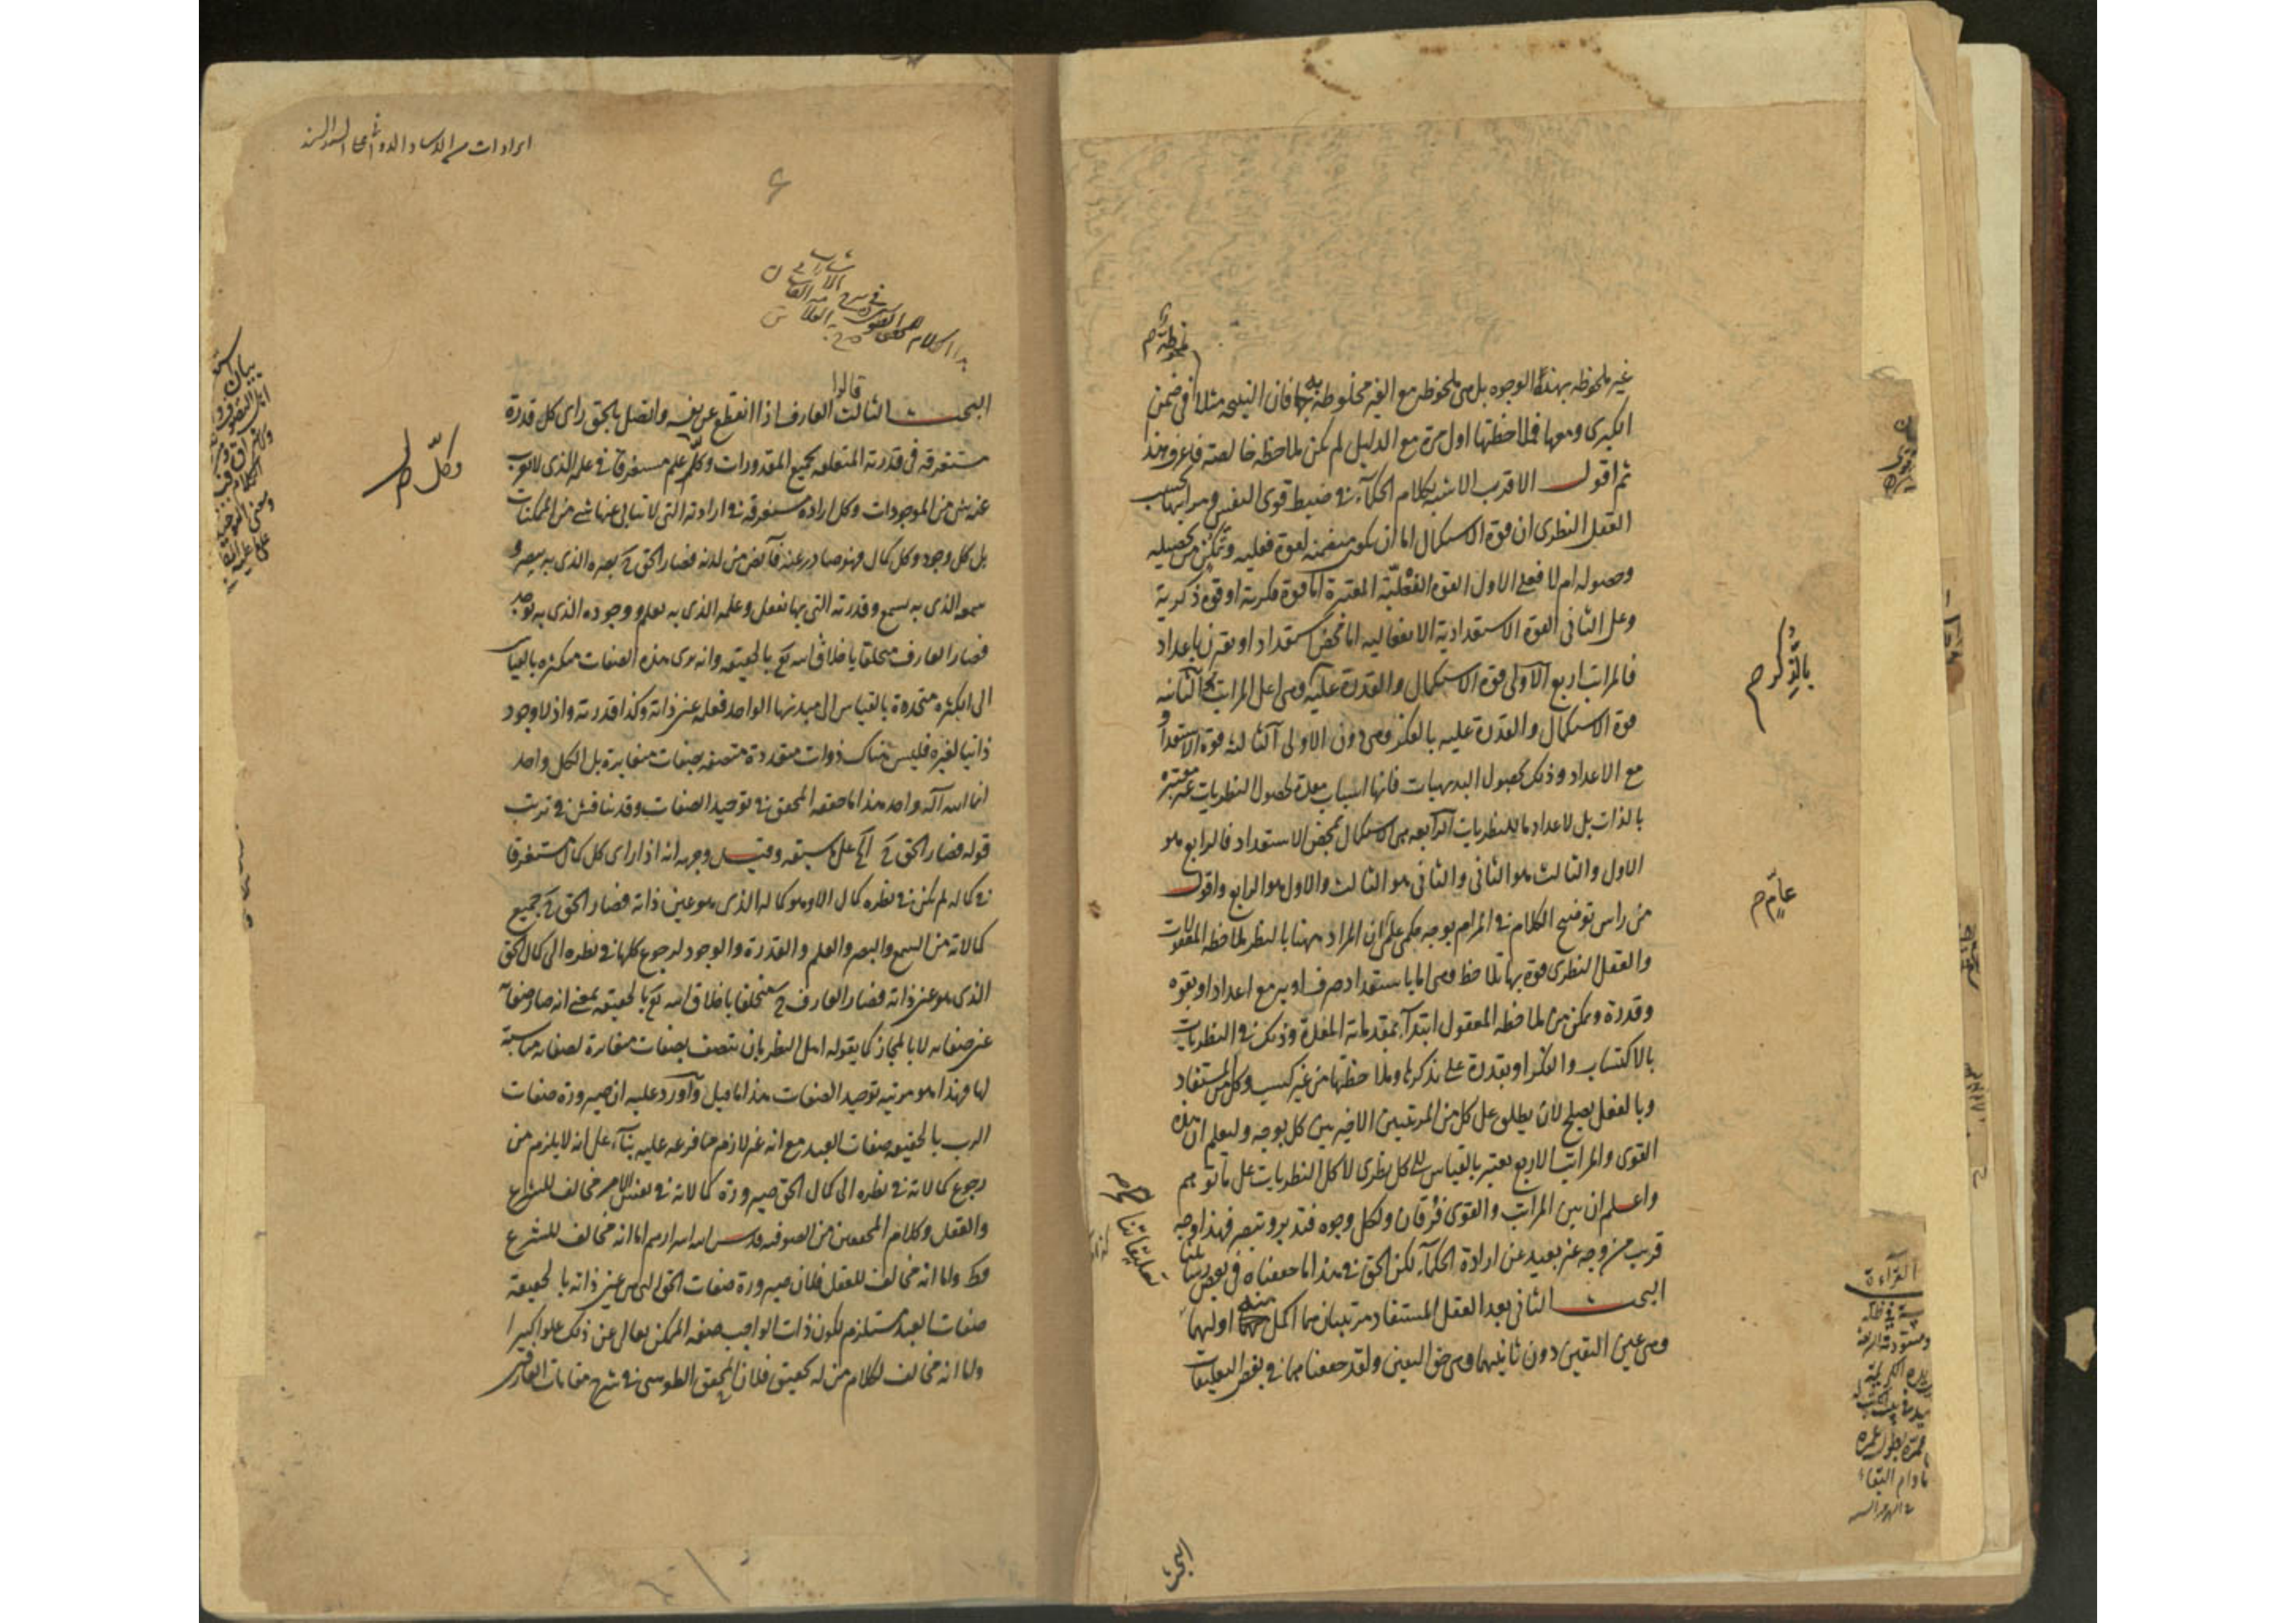 غير ملحوظه بهذه الوجوه بل هى ملحوظه مع الغير مخلوطة به فان النتيجه مثلا فى ضمن
الكبرى ومعها فملاحظتها اول مرة مع الدليل لم تكن ملاحظه خالصته فاعرف هذا
ثم اقول الاقرب الاشبه بكلام الحكمآء فى ضبط قوى النفس ومراتبها بحسب
العقل النظرى ان قوة الاستكمال اما ان تكون متضمنه لقوة فعليه وتمكن من تحصيله
وحصوله ام لا فعلى الاول القوة الفعليّة المعتبرة اما قوة فكرية او قوة ذكرية
وعلى الثانى القوة الاستعدادية الانفعاليه اما محض استعداد او يقترن باعداد
فالمراتب اربع الاولى قوة الاستكمال والقدرة عليه وهى اعلى المراتب الثانيه
قوة الاستكمال والقدرة عليه بالفكر وهى دون الاولى الثالثه قوة الاستعداد
مع الاعداد وذلك كحصول البديهيات فانها اسباب معدة لحصول النظريات غير معتبره
بالذات بل لاعدادها للنظريات الرابعه هى الاستكمال بمحض الاستعداد فالرابع هو
الاول والثالث هو الثانى والثانى هو الثالث والاول هو الرابع واقول
من راس توضيح الكلام فى المرام بوجه حكمى على ان المراد ههنا بالنظر ملاحظه المعقولات
والعقل النظرى قوة بها تلاحظ وهى اما باستعداد صرف او به مع اعداد او بقوه
وقدرة وتمكن من ملاحظه المعقول ابتدآء بمقدماته المعدة وذلك فى النظريات
بالاكتساب والفكر او بقدرة على تذكرها وملاحظتها من غير كسب وكل من المستفاد
وبالفعل يصلح لان يطلق على كل من المرتبتين الاخيرتين كل بوجه وليعلم ان هذه
القوى والمراتب الاربع يعتبر بالقياس الى كل نظرى لا كل النظريات على ما توهم
واعلم ان بين المراتب والقوى فرقان ولكل وجوه فتدبر وتبصر فهذا وجه
قريب من وجه غير بعيد عن ارادة الحكمآء لكن الحق فى هذا ما حققناه فى بعض رسائلنا
البحث الثانى بعد العقل المستفاد مرتبتان هما اكمل منه اوليهما
وهى عين اليقين دون ثانيهما وهى حق اليقين ولقد حققناهما فى بعض التعليقات
بالتذكر م
عامّ م
تعليقاتنا م
القرآءة
البحث
قالوا
البحث الثالث العارف اذا انقطع عن نفسه واتصل بالحق راى كل قدرة
مستغرقه فى قدرته المتعلقه بجميع المقدورات وكل علم مستغرقا فى علمه الذى لا يعزب
عنه شئ من الموجودات وكل ارادة مستغرقه فى ارادته التى لا يتابى عنها شئ من الممكنات
بل كل وجود وكل كمال فهو صادر عنه فائض من لدنه فصار الحق ح بصره الذى به يبصر و
سمعه الذى به يسمع وقدرته التى بها يفعل وعلمه الذى به يعلم ووجوده الذى به يوجد
فصار العارف متخلقا باخلاق الله تع بالحقيقه وانه يرى هذه الصفات متكثره بالقياس
الى الكثره متحدة بالقياس الى مبدئها الواحد فعلمه عين ذاته وكذا قدرته واذ لا وجود
ذاتيا لغيره فليس هناك ذوات متعددة متصفه بصفات متغايرة بل الكل واحد
انما الله اله واحد هذا ما حققه المحقق فى توحيد الصفات وقد يناقش فى ترتب
قوله فصار الحق ح اه على ما سبقه وقيل وجهه انه اذا راى كل كمال مستغرقا
فى كماله لم يكن فى نظره كمال الا وهو كماله الذى هو عين ذاته فصار الحق ح جميع
كمالاته من السمع والبصر والعلم والقدرة والوجود لرجوع كلها فى نظره الى كمال الحق
الذى هو عين ذاته فصار العارف ح متخلقا باخلاق الله تع بالحقيقه بمعنى انه صار صفاته
عين صفاته لا بالمجاز كما يقوله اهل النظر بان يتصف بصفات مغايرة لصفاته مناسبة
لها فهذا هو مرتبه توحيد الصفات هذا ما قيل وآورد عليه ان صيرورة صفات
الرب بالحقيقه صفات العبد مع انه غير لازم مما فرعه عليه بنآء على انه لا يلزم من
رجوع كمالاته فى نظره الى كمال الحق صيرورة كمالاته فى نفس الامر مخالف للشرع
والعقل وكلام المحققين من الصوفيه قدس الله اسرارهم اما انه مخالف للشرع
فظ واما انه مخالف للعقل فلان صيرورة صفات الحق التى هى عين ذاته بالحقيقة
صفات العبد مستلزم لكون ذات الواجب صفه الممكن تعالى عن ذلك علوا كبيرا
واما انه مخالف لكلام من له تحقيق فلان المحقق الطوسى فى شرح مقامات العارفين
وكلّ